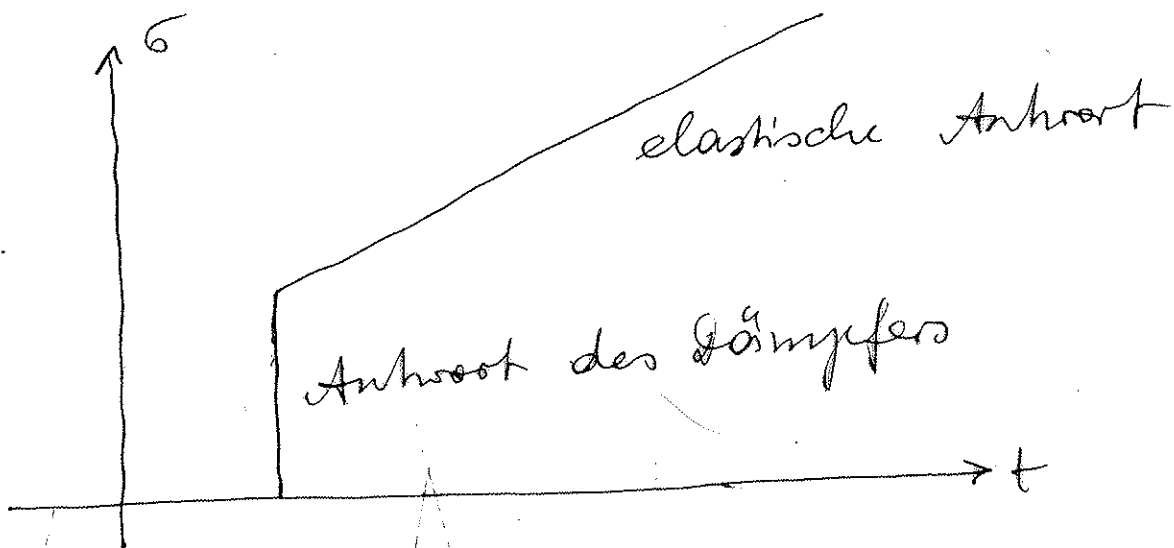 σ
elastische Antwort
Antwort des Dämpfers
t